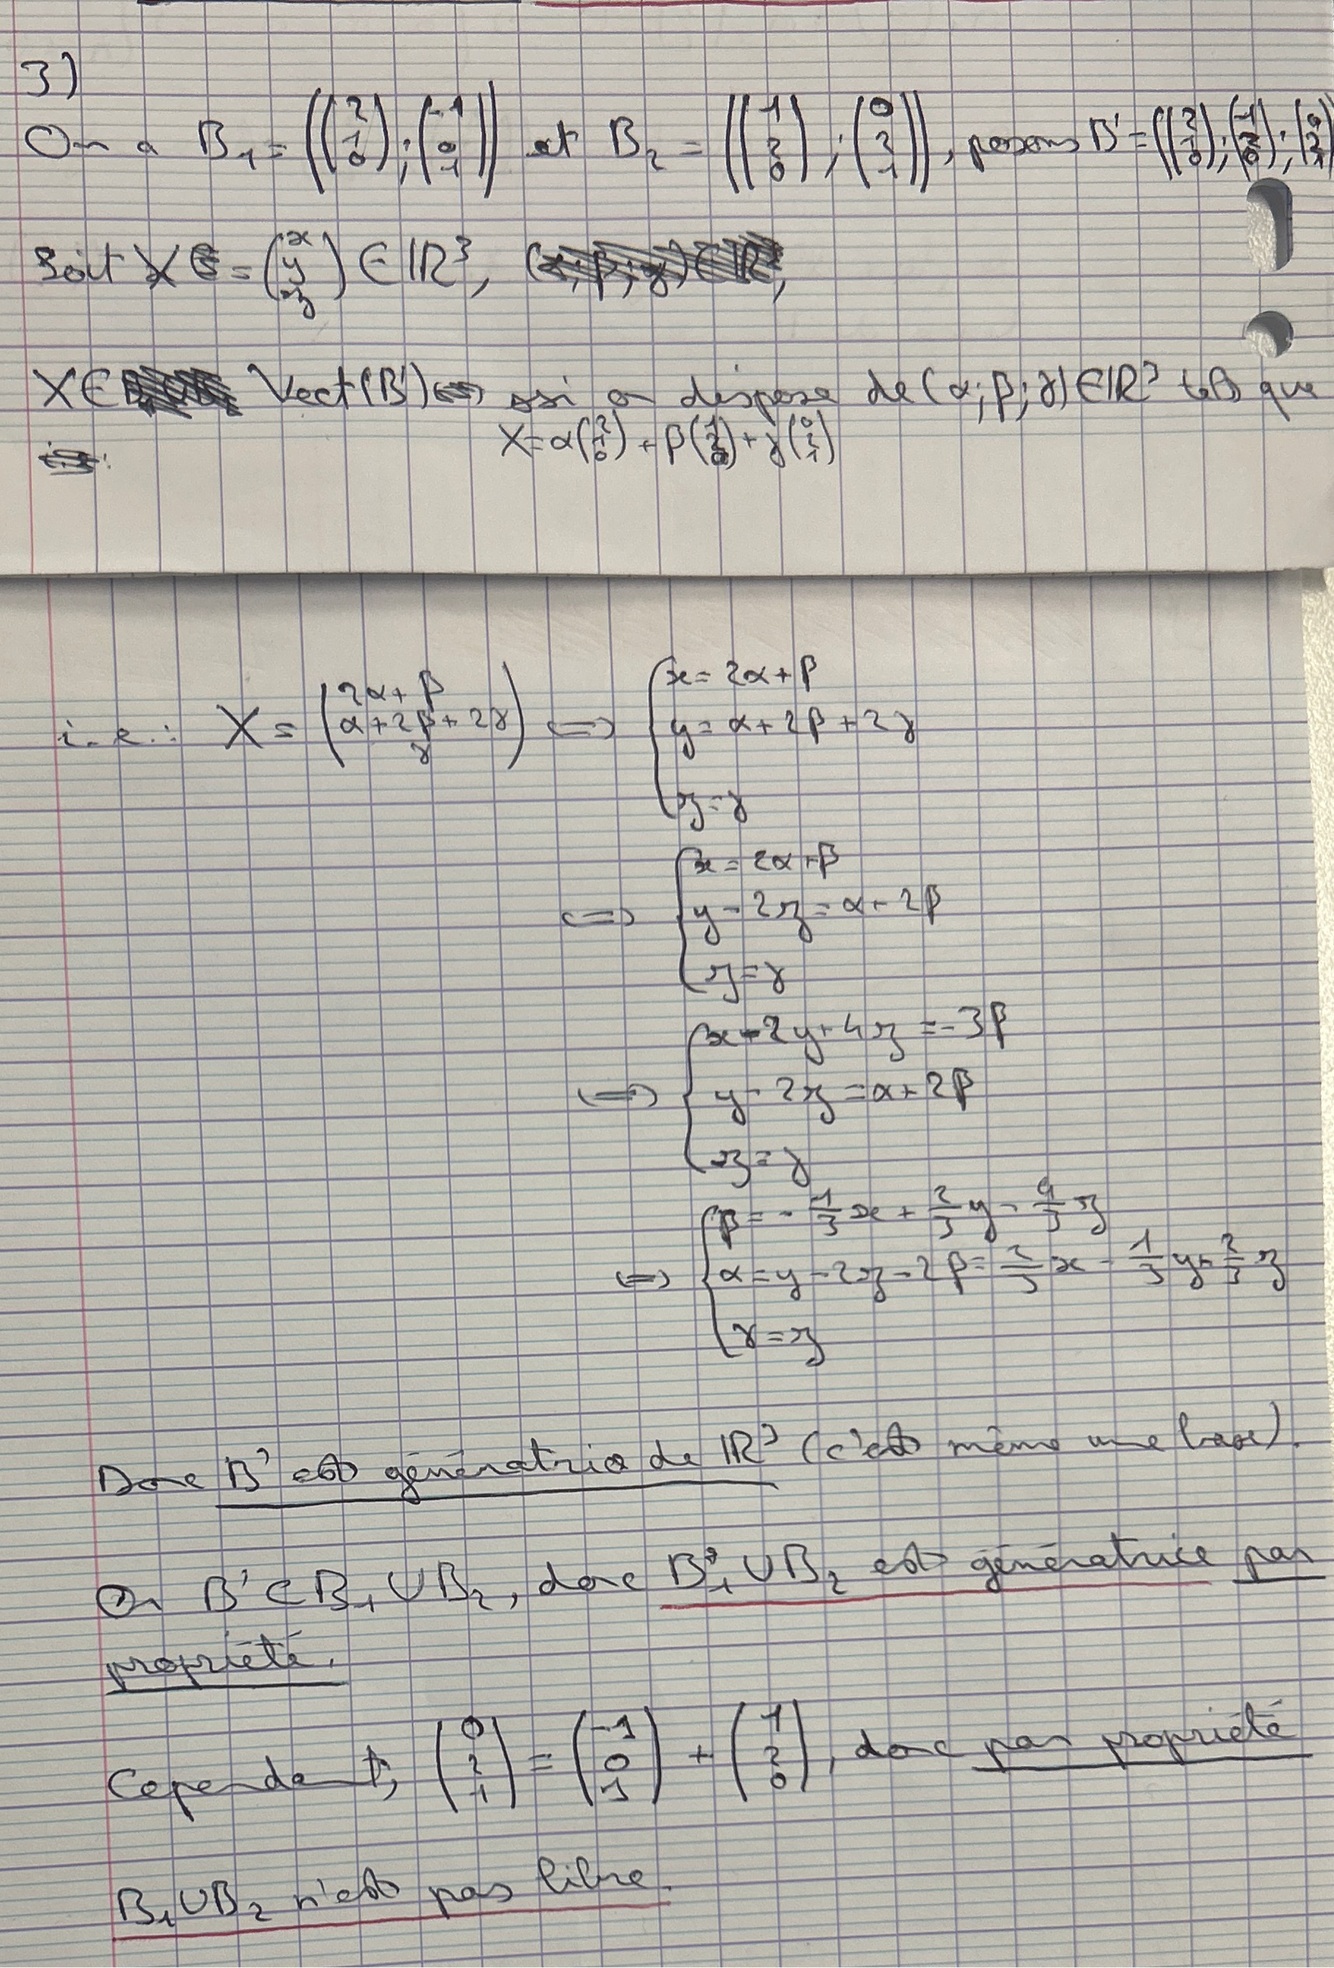 3)
On a B₁ = ((2 1 0) ; (-1 0 1)) et B₂ = ((1 2 0) ; (0 2 1)), posons B' = ((2 1 0) ; (1 2 0) ; (0 2 1)
Soit X = (x y z) ∈ ℝ³,
X ∈ Vect(B') ssi on dispose de (α; β; γ) ∈ ℝ³ tels que
X = α(2 1 0) + β(1 2 0) + γ(0 2 1)
i.e.: X = (2α+β α+2β+2γ γ) ⟺ { x = 2α+β
y = α+2β+2γ
z = γ
⟺ { x = 2α+β
y-2z = α+2β
z = γ
⟺ { x-2y+4z = -3β
y-2z = α+2β
z = γ
⟺ { β = -1/3 x + 2/3 y - 4/3 z
α = y-2z-2β = 2/3 x - 1/3 y + 2/3 z
γ = z
Donc B' est génératrice de ℝ³ (c'est même une base).
Or B' ⊂ B₁ ∪ B₂, donc B₁ ∪ B₂ est génératrice par
propriété.
Cependant, (0 2 1) = (-1 0 1) + (1 2 0), donc par propriété
B₁ ∪ B₂ n'est pas libre.